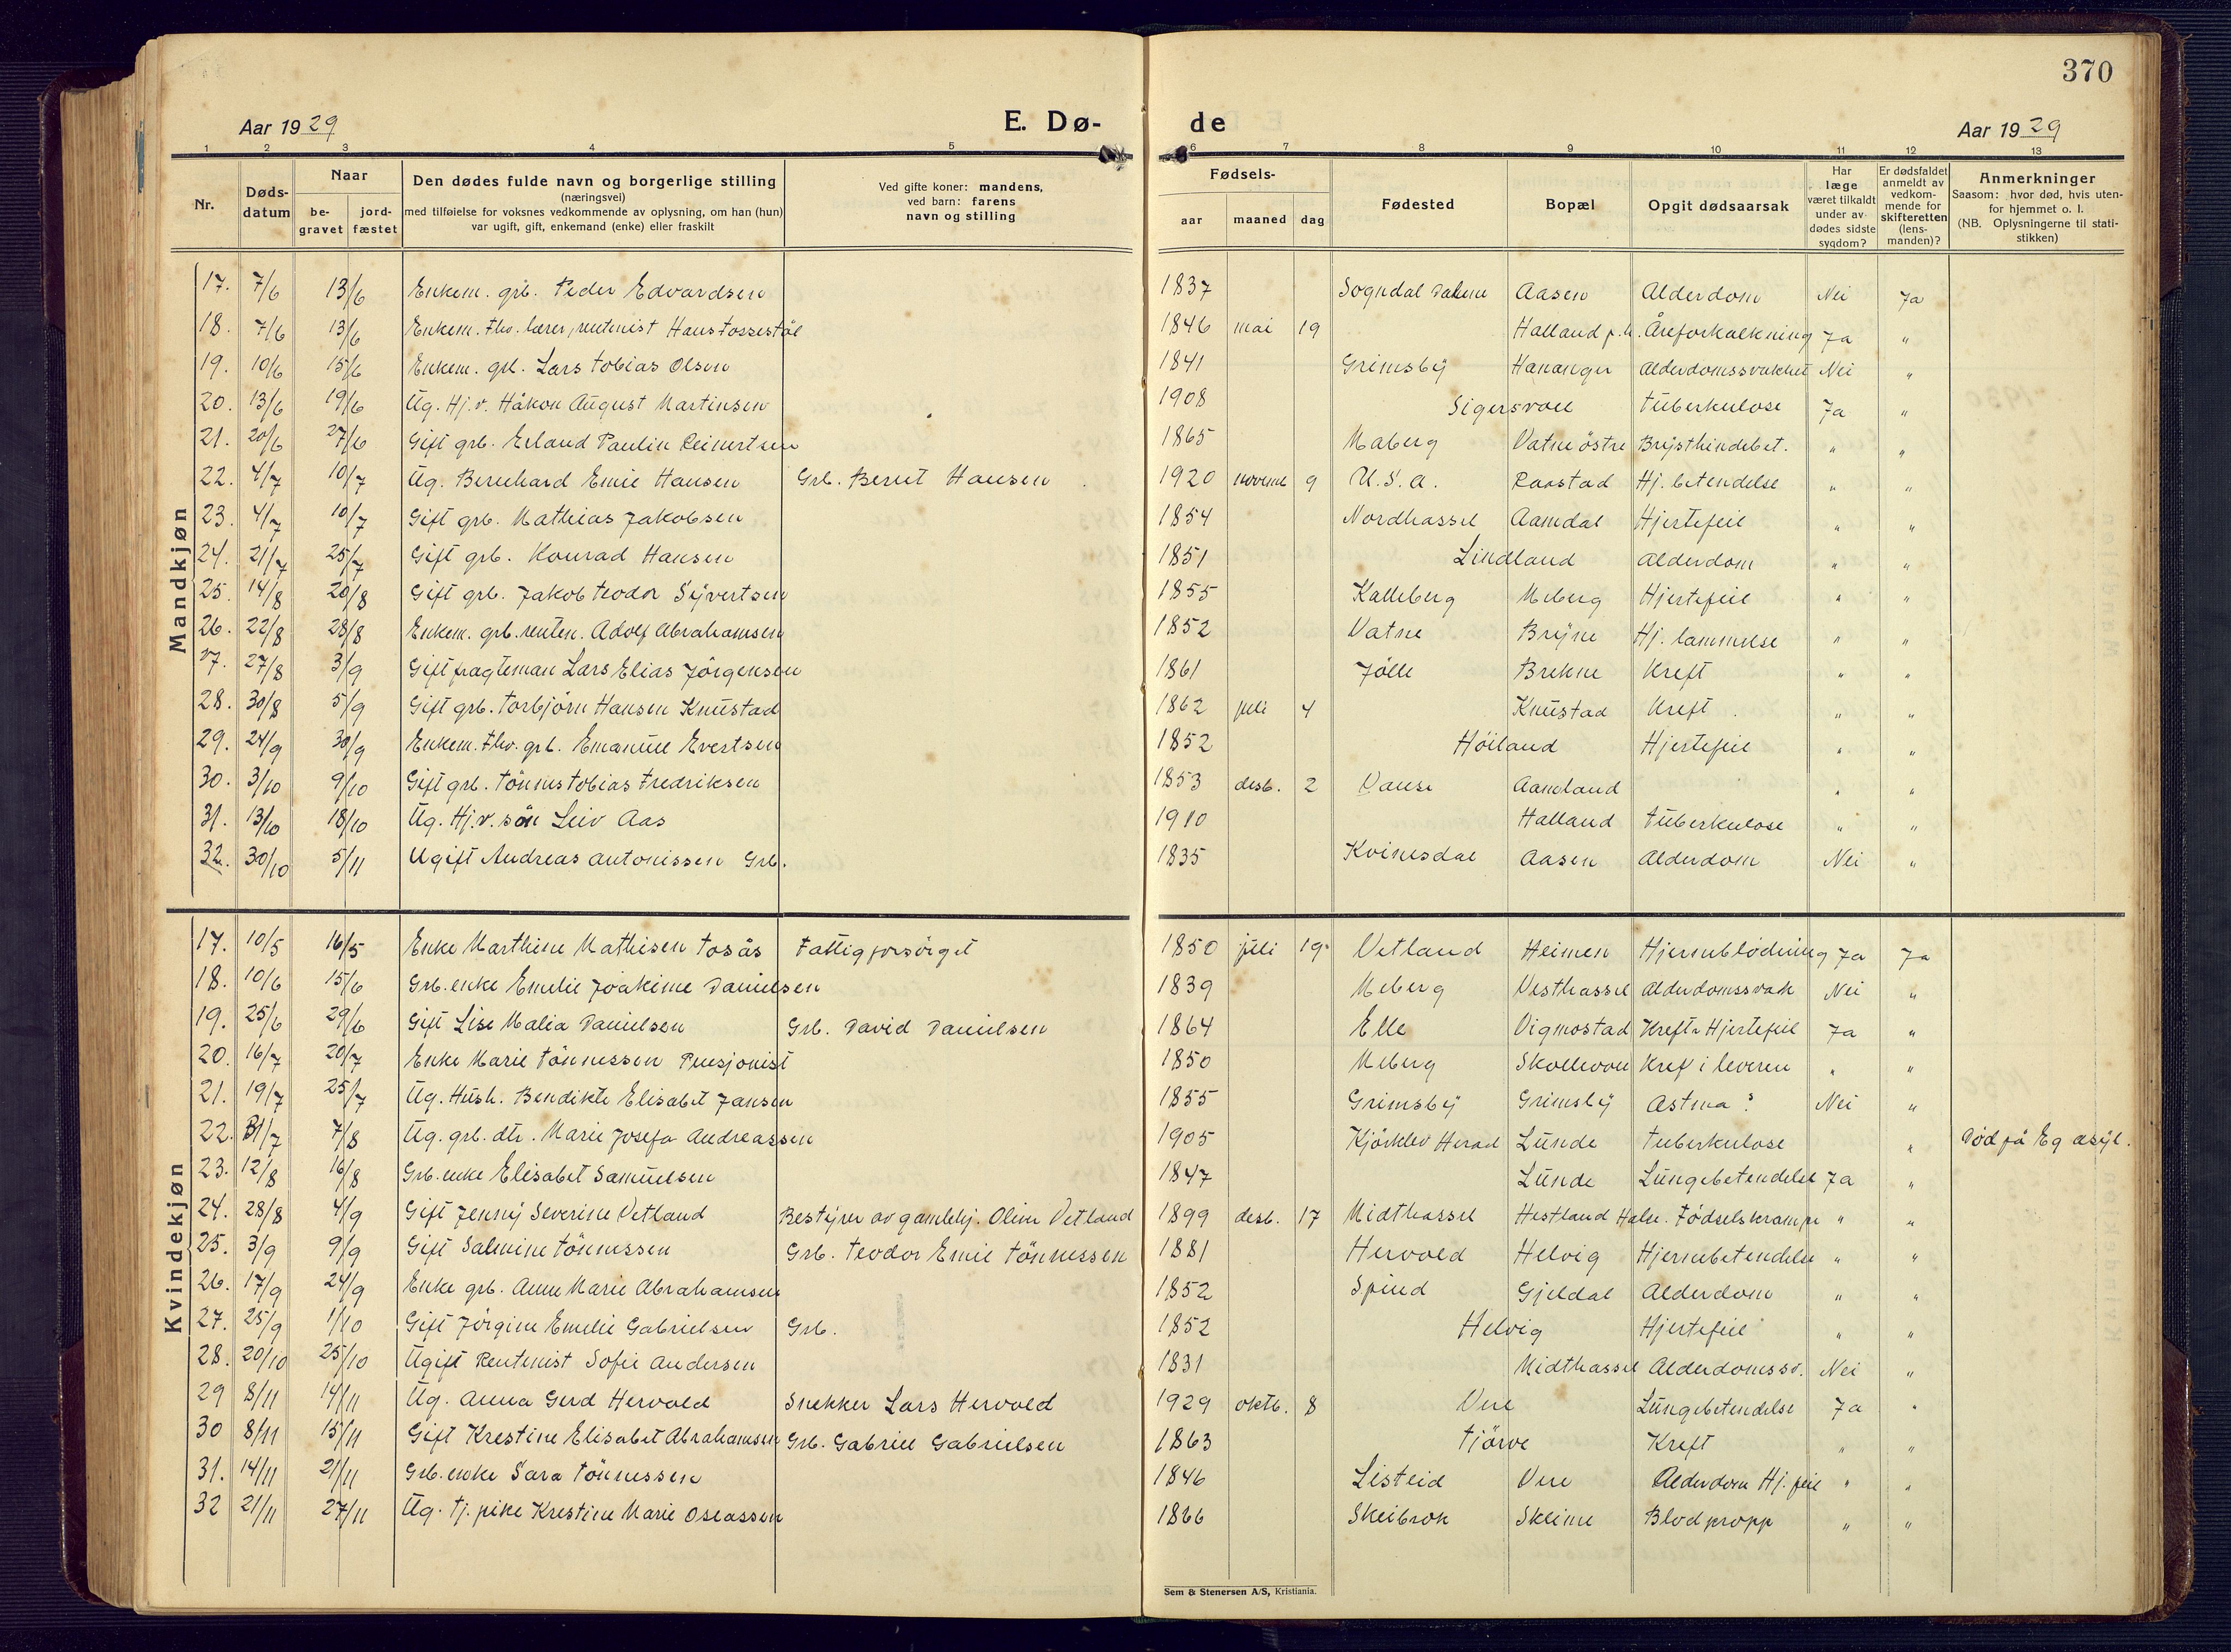 370
Aar 1929
E. Dø-
de
Aar 1929
1 2 3 4 5 6 7 8 9 10 11 12 13
Nr.
Døds-
datum
Naar
be-
gravet
jord-
fæstet
Den dødes fulde navn og borgerlige stilling
(næringsvei)
med tilføielse for voksnes vedkommende av oplysning, om han (hun)
var ugift, gift, enkemand (enke) eller fraskilt
Ved gifte koner: mandens,
ved barn: farens
navn og stilling
Fødsels-
aar maaned dag
Fødested
Bopæl
Opgit dødsaarsak
Har
læge
været tilkaldt
under av-
dødes sidste
sygdom?
Er dødsfaldet
anmeldt av
vedkom-
mende for
skifteretten
(lens-
manden)?
Anmerkninger
Saasom: hvor død, hvis uten-
for hjemmet o. l.
(NB. Oplysningerne til stati-
stikken)
Mandkjøn
17. 7/6 13/6 Enkem. grb. Peder Edvardsen 1837 Sogndal Dalene Aasen Alderdom Nei Ja
18. 7/6 13/6 Enkem. fhv. lærer, rentenist Hans Tossestøl 1846 mai 19 Halland p.h. Åreforkalkning Ja "
19. 10/6 15/6 Enkem. grb. Lars Tobias Olsen 1841 Grimsby Hananger Alderdomssvakhet Nei "
20. 13/6 19/6 Ug. Hj.v. Håkon August Martinsen 1908 Sigersvoll Tuberkulose Ja "
21. 20/6 27/6 Gift grb. Erland Paulin Reinertsen 1865 Maberg Vatne østre Brysthindebet. " "
22. 4/7 10/7 Ug. Bernhard Emil Hansen Grb. Bernt Hansen 1920 novembe 9 U.S.A. Raastad Hj. betendelse " "
23. 4/7 10/7 Gift grb. Mathias Jakobsen 1854 Nordhassel Aamdal Hjertefeil " "
24. 21/7 25/7 Gift grb. Konrad Hansen 1851 Lindland Alderdom " "
25. 14/8 20/8 Gift grb. Jakob Teodor Syvertsen 1855 Kalleberg Meberg Hjertefeil " "
26. 22/8 28/8 Enkem. grb. renten. Adolf Abrahamsen 1852 Vatne Bryne Hj. lammelse " "
27. 27/8 3/9 Gift fragteman Lars Elias Jörgensen 1861 Jölle Brekne Kreft " "
28. 30/8 5/9 Gift grb. Torbjörn Hansen Knustad 1862 juli 4 Knustad Kreft " "
29. 24/9 30/9 Enkem. fhv. grb. Emanuel Evertsen 1852 Höiland Hjertefeil " "
30. 3/10 9/10 Gift grb. Tönnes Tobias Fredriksen 1853 desb. 2 Vanse Aamland " "
31. 13/10 18/10 Ug. Hj.v. sön Leiv Aas 1910 Halland Tuberkulose " "
32. 30/10 5/11 Ugift Andreas Antonissen Grb. 1835 Kvinesdal Aasen Alderdom Nei "
Kvindekjøn
17. 10/5 16/5 Enke Marthine Mathisen Tosås Fattigforsörget 1850 juli 19 Vetland Heimen Hjerneblödning Ja Ja
18. 10/6 15/6 Grb. enke Emelie Joakime Danielsen 1839 Meberg Vesthassel Alderdomssvak Nei "
19. 25/6 29/6 Gift Lise Malia Danielsen Grb. David Danielsen 1864 Elle Vigmostad Kreft Hjertefeil Ja "
20. 16/7 20/7 Enke Marie Tönnessen Pensjonist 1850 Meberg Skollevoll Kref i leveren " "
21. 19/7 25/7 Ug. Hush. Bendikte Elisabet Jansen 1855 Grimsby Grimsby Astma? Nei "
22. 31/7 7/8 Ug. grb. dtr. Marie Josefa Andreassen 1905 Kjörklev Herad Lunde Tuberkulose " Död på Eg asyl.
23. 12/8 16/8 Grb. enke Elisabet Samuelsen 1847 Lunde Lungebetendelse Ja "
24. 28/8 4/9 Gift Jenny Severine Vetland Bestyrer av gamlehj. Oliver Vetland 1899 desb. 17 Midthassel Hestland Halse. Födselskrampe " "
25. 3/9 9/9 Gift Salmine Tönnessen Grb. Teodor Emil Tönnessen 1881 Hervold Helvig Hjernebetendelse " "
26. 17/9 24/9 Enke grb. Anne Marie Abrahamsen 1852 Spind Gjeldal Alderdom " "
27. 25/9 1/10 Gift Jörgine Emelie Gabrielsen Grb. 1852 Helvig Hjertefeil " "
28. 20/10 25/10 Ugift Rentenist Sofie Andersen 1831 Midthassel Alderdomssv. Nei "
29 8/11 14/11 Ug. Anna Gerd Hervold Snekker Lars Hervold 1929 oktb. 8 Vere Lungebetendelse Ja "
30 8/11 15/11 Gift Krestine Elisabet Abrahamsen Grb. Gabriel Gabrielsen 1863 Tjörve Kreft " "
31. 14/11 21/11 Grb. enke Sara Tönnessen 1846 Listeid Vere Alderdom Hj. feil " "
32 21/11 27/11 Ug. Tj. pike Krestine Marie Oseassen 1866 Skeibrok Skeime Blodpropp " "
Sem & Stenersen A/S, Kristiania.